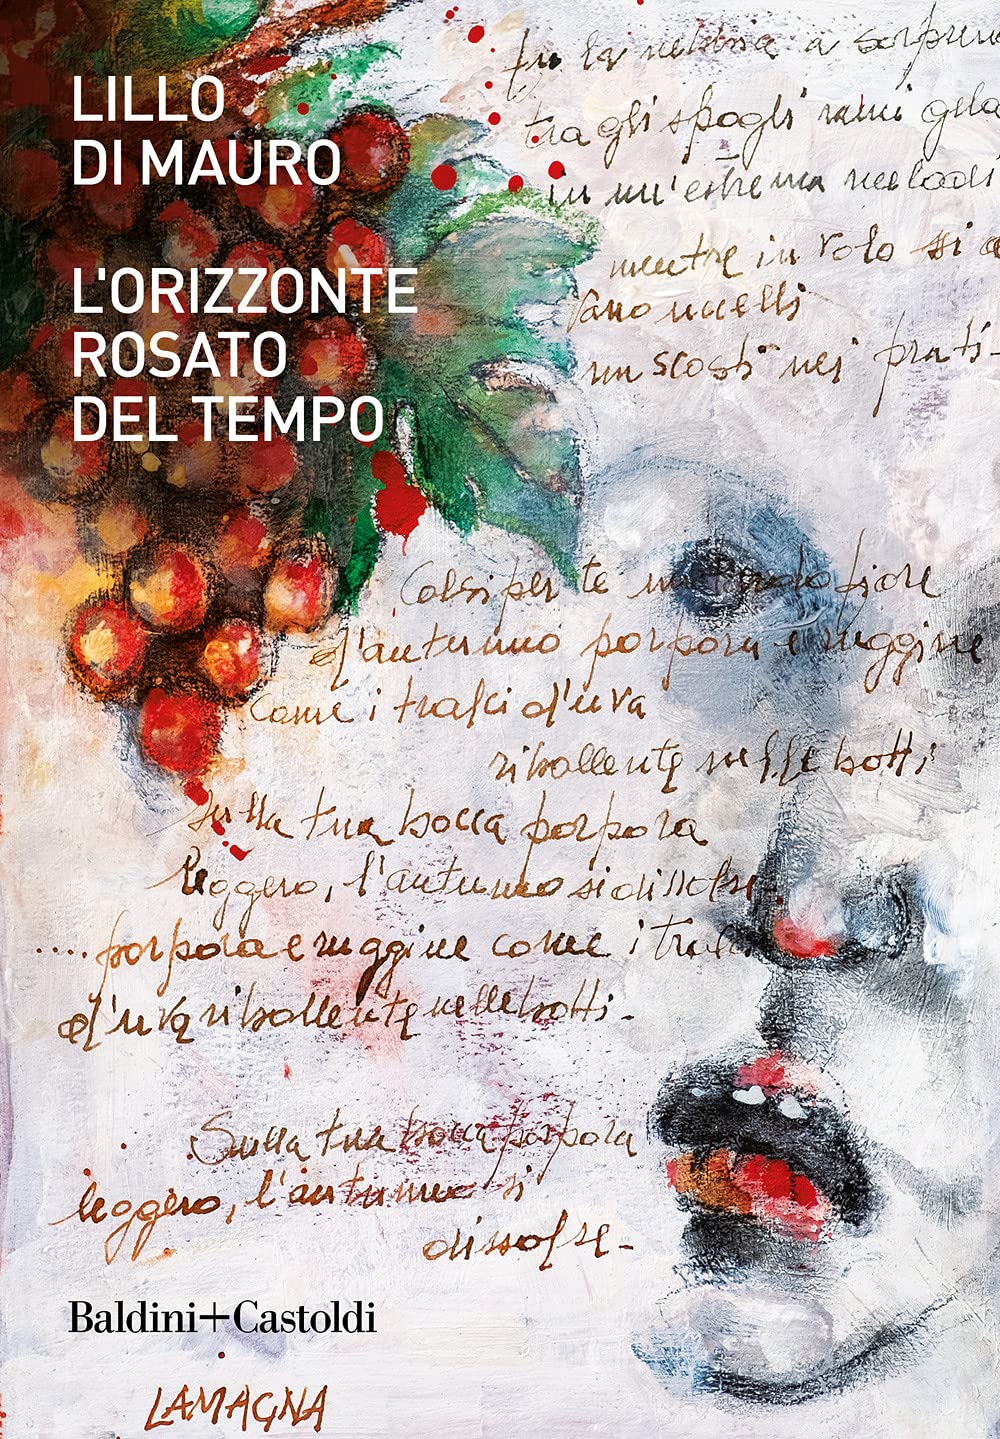 LILLO
DI MAURO
L'ORIZZONTE
ROSATO
DEL TEMPO
fu la nebbia a sorpren
tra gli spogli rami gela
in un'estrema melodi
mentre in volo si a
uccelli
nei prati-
Colsi per te un fiore
d'autunno porpora e ruggine
Come i tralci d'uva
ribollente nelle botti
sulla tua bocca porpora
leggero, l'autunno si dissolse-
....porpora e ruggine come i tralci
d'uva ribollente nelle botti-
Sulla tua bocca porpora
leggero, l'autunno si
dissolse-
Baldini+Castoldi
LAMAGNA